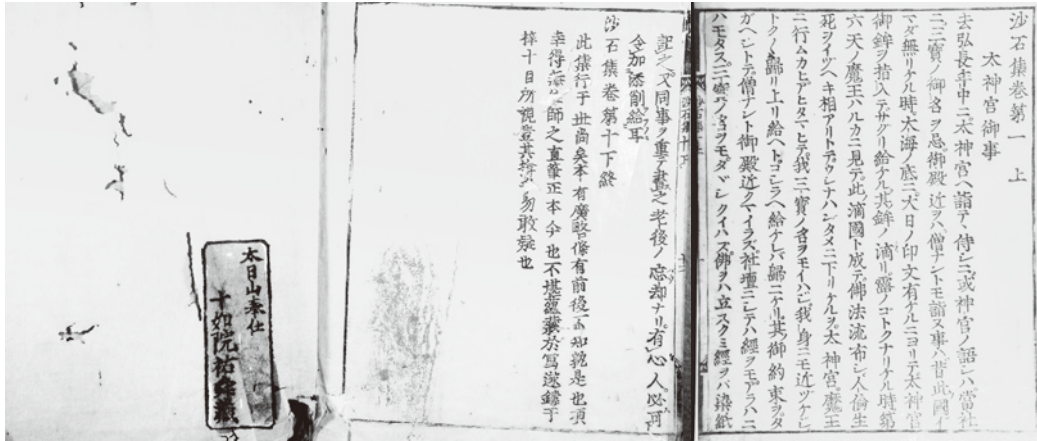 沙石集巻第一 上
太神宮御事
去弘長年中ニ太神宮ヘ詣テ侍シニ或神官ノ語シハ當社
ニ三寳ノ御名ヲ忌御殿近ヲハ僧ナントモ詣ヌ事ハ昔此國イ
マダ無リケル時太海ノ底ニ大日ノ印文有ケルニヨリテ太神宮
御鉾ヲ指入テサグリ給ケル其鉾ノ滴リ露ノコトクナリケル時第
六天ノ魔王ハルカニ見テ此滴國ト成テ佛法流布シ人倫生
死ヲイツヘキ相アリトテウシナハンタメニ下リケルヲ太神宮魔王
ニ行ムカヒアヒタマヒテ我三寳ノ名ヲモイハジ我身ニモ近ツケジ
トクノ歸リ上リ給ヘトコシラヘ給ケレバ歸ニケリ其御約束ヲタ
ガヘシトテ僧ナント御殿近クマイラズ社壇ニシテハ經ヲモアラハニ
ハモタズ三寳ノ名ヲモタヾシクイハズ佛ヲハ立スクミ經ヲバ染紙
記之又同事ヲ重テ書之老後ノ忘却ナリ有心人必可
令加添削給耳
沙石集巻第十下終
此集行于世尚矣本有廣略條有前後不知孰是也頃
幸得師之直筆正本今也不堪藏於寫遂鏤于
梓十目所視豈其掩勿敢疑也
本日山奉仕
十如院祐